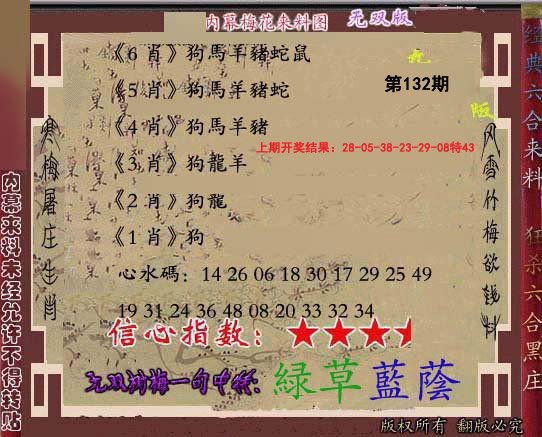 内幕梅花来料图 无双版
《6 肖》狗馬羊豬蛇鼠
第132期
《5 肖》狗馬羊豬蛇
《4 肖》狗馬羊豬
上期开奖结果：28-05-38-23-29-08特43
《3 肖》狗龍羊
《2 肖》狗龍
《1 肖》狗
心水碼：14 26 06 18 30 17 29 25 49
19 31 24 36 48 08 20 33 32 34
信心指数：★★★
无双狗梅一句中特：綠草藍蔭
版权所有 翻版必究
寒梅屠庄生肖
内幕来料未经允许不得转贴
风雪竹梅欲钱料
经典六合来料
狂杀六合黑庄